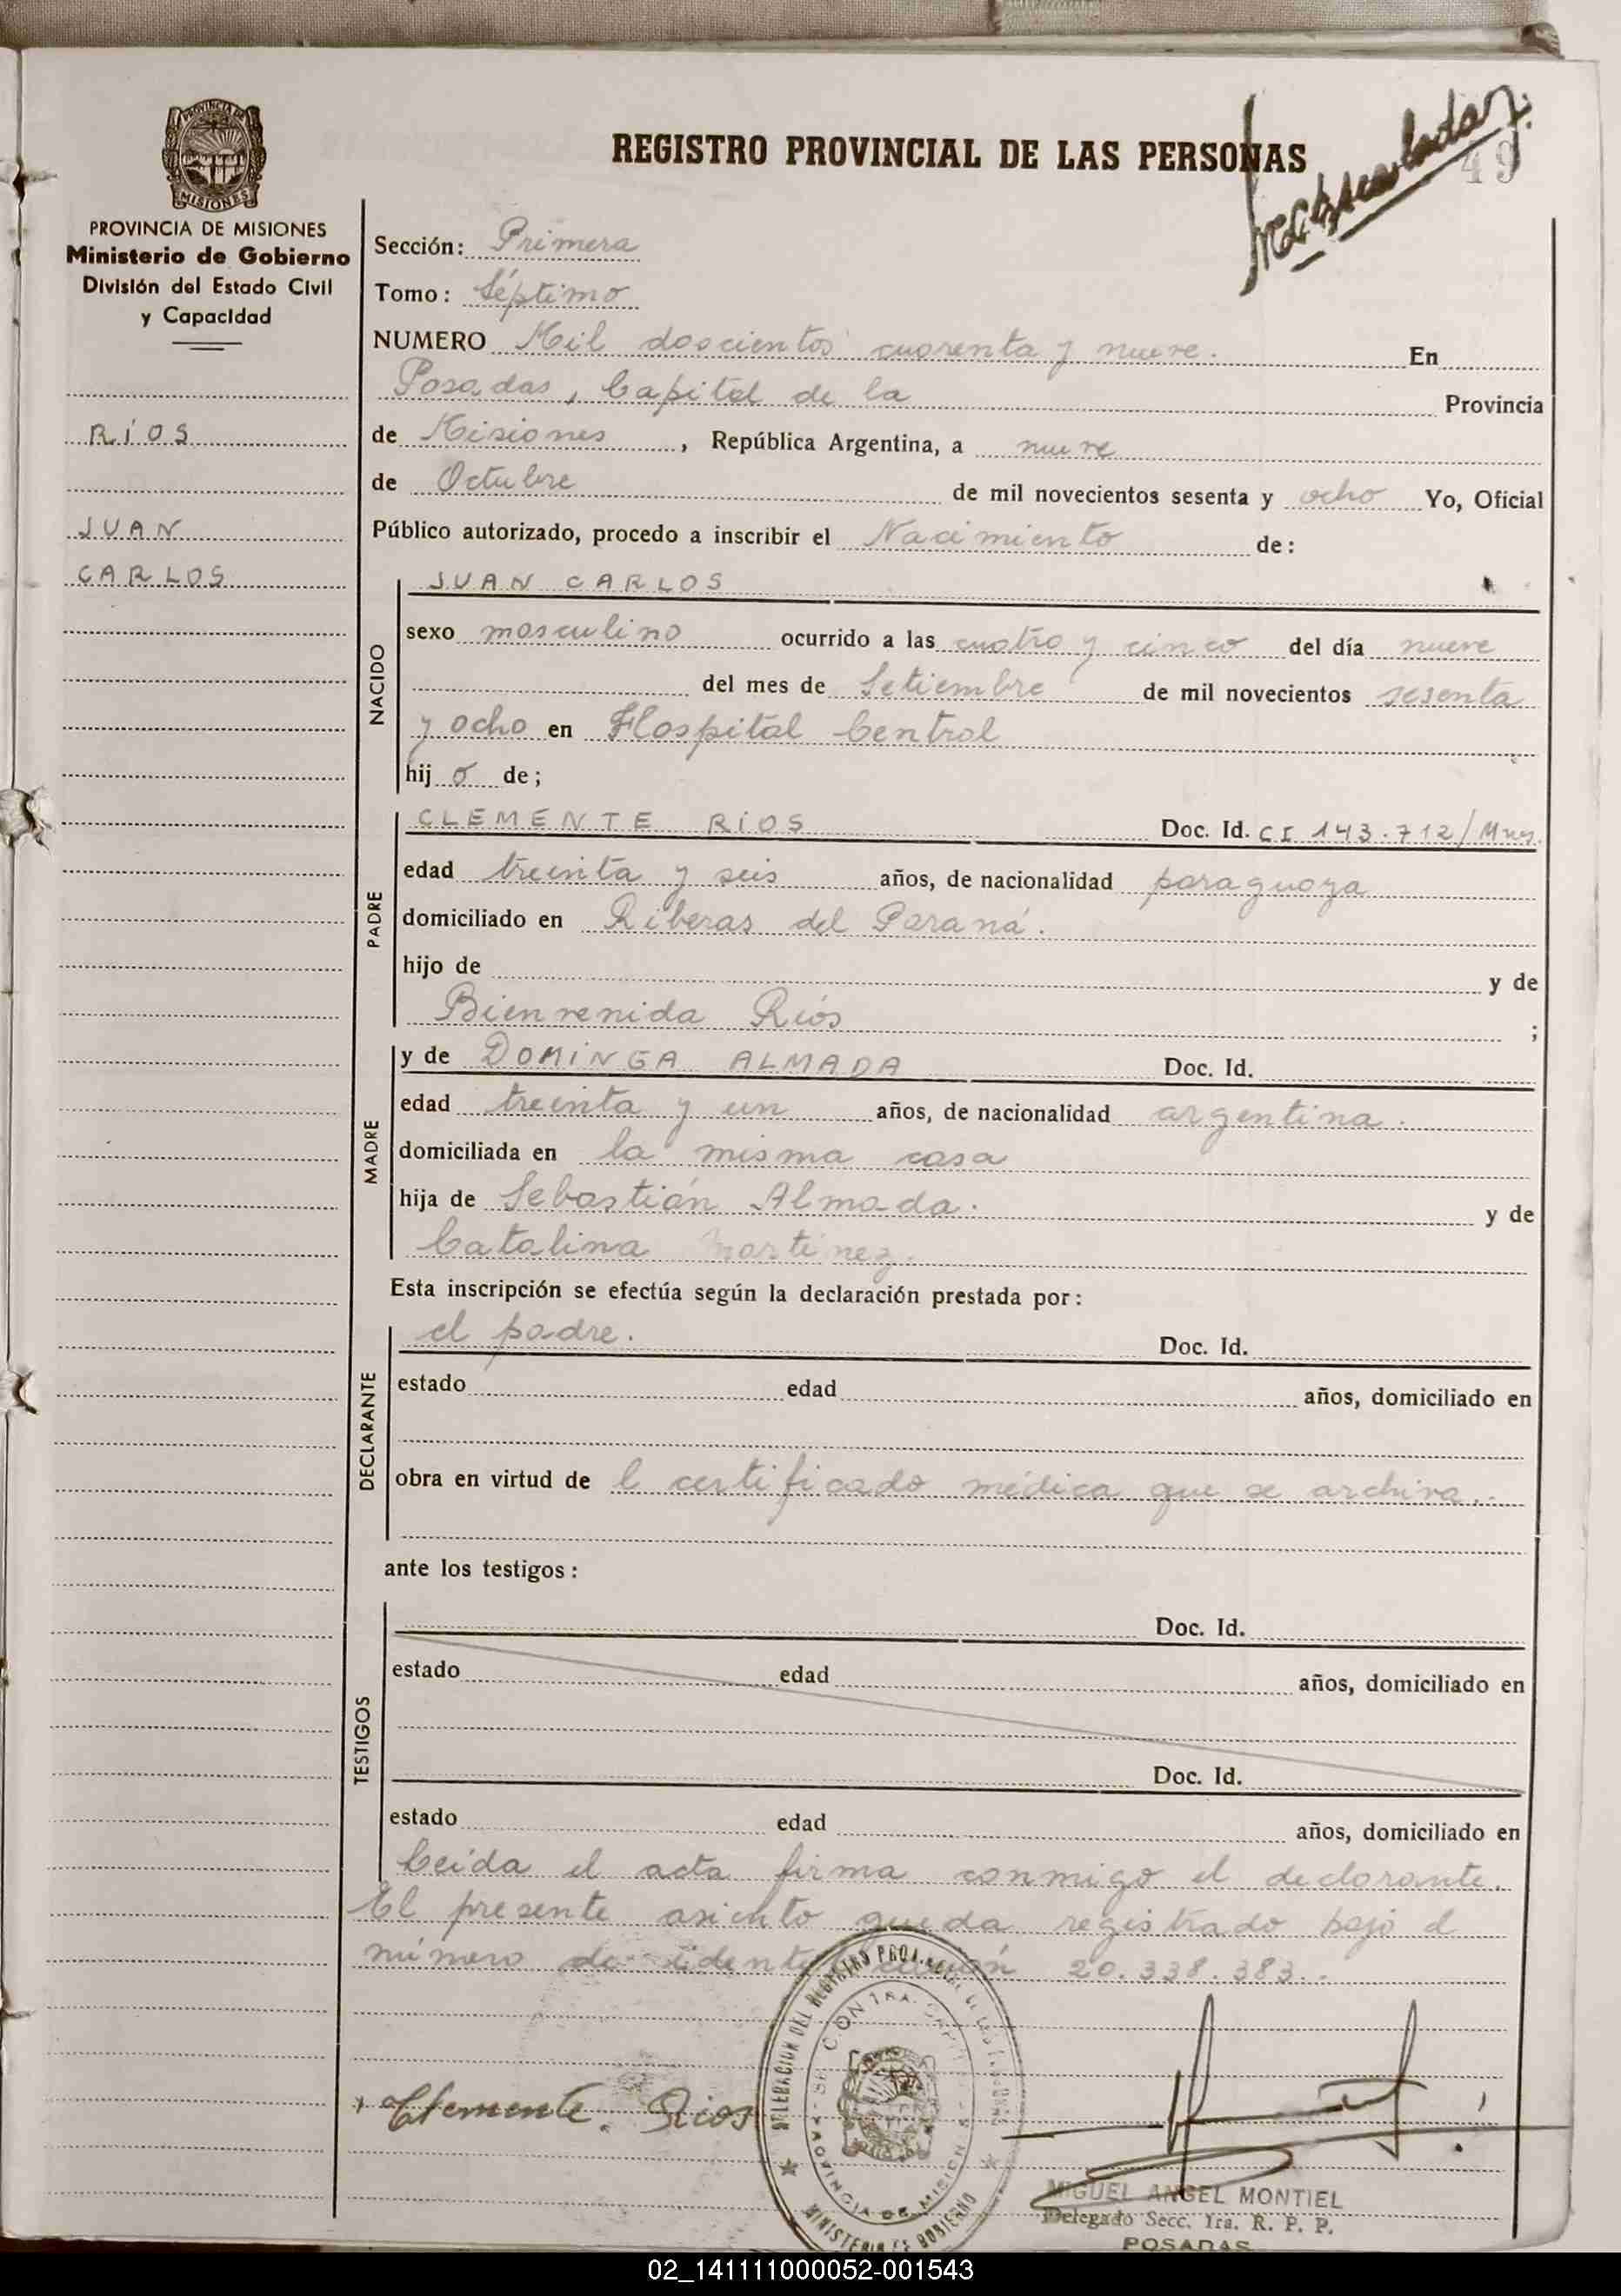 REGISTRO PROVINCIAL DE LAS PERSONAS
49
PROVINCIA DE MISIONES
Ministerio de Gobierno
División del Estado Civil
y Capacidad
RÍOS
JUAN
CARLOS
Sección: Primera
Tomo: Séptimo
NUMERO Mil doscientos cuarenta y nueve. En
Posadas, Capital de la Provincia
de Misiones, República Argentina, a nueve
de Octubre de mil novecientos sesenta y ocho Yo, Oficial
Público autorizado, procedo a inscribir el Nacimiento de:
NACIDO
JUAN CARLOS
sexo masculino ocurrido a las cuatro y cinco del día nueve
del mes de Setiembre de mil novecientos sesenta
y ocho en Hospital Central
hijo de;
PADRE
CLEMENTE RÍOS Doc. Id. C I 143.712/Mnes.
edad treinta y seis años, de nacionalidad paraguaya
domiciliado en Riberas del Paraná.
hijo de y de
Bienvenida Ríos ;
MADRE
y de DOMINGA ALMADA Doc. Id.
edad treinta y un años, de nacionalidad argentina.
domiciliada en la misma casa
hija de Sebastián Almada. y de
Catalina Martinez.
Esta inscripción se efectúa según la declaración prestada por:
DECLARANTE
el padre. Doc. Id.
estado edad años, domiciliado en
obra en virtud de l certificado médica que se archiva..
ante los testigos:
TESTIGOS
Doc. Id.
estado edad años, domiciliado en
Doc. Id.
estado edad años, domiciliado en
Leída el acta firma conmigo el declarante.
El presente asiento queda registrado bajo el
número de identificación 20.338.383..
Clemente. Rios
DELEGACION DEL REGISTRO PROVINCIAL DE LAS PERSONAS
PROVINCIA DE MISIONES
MINISTERIO DE GOBIERNO
MIGUEL ANGEL MONTIEL
Delegado Secc. 1ra. R. P. P.
POSADAS
02_141111000052-001543